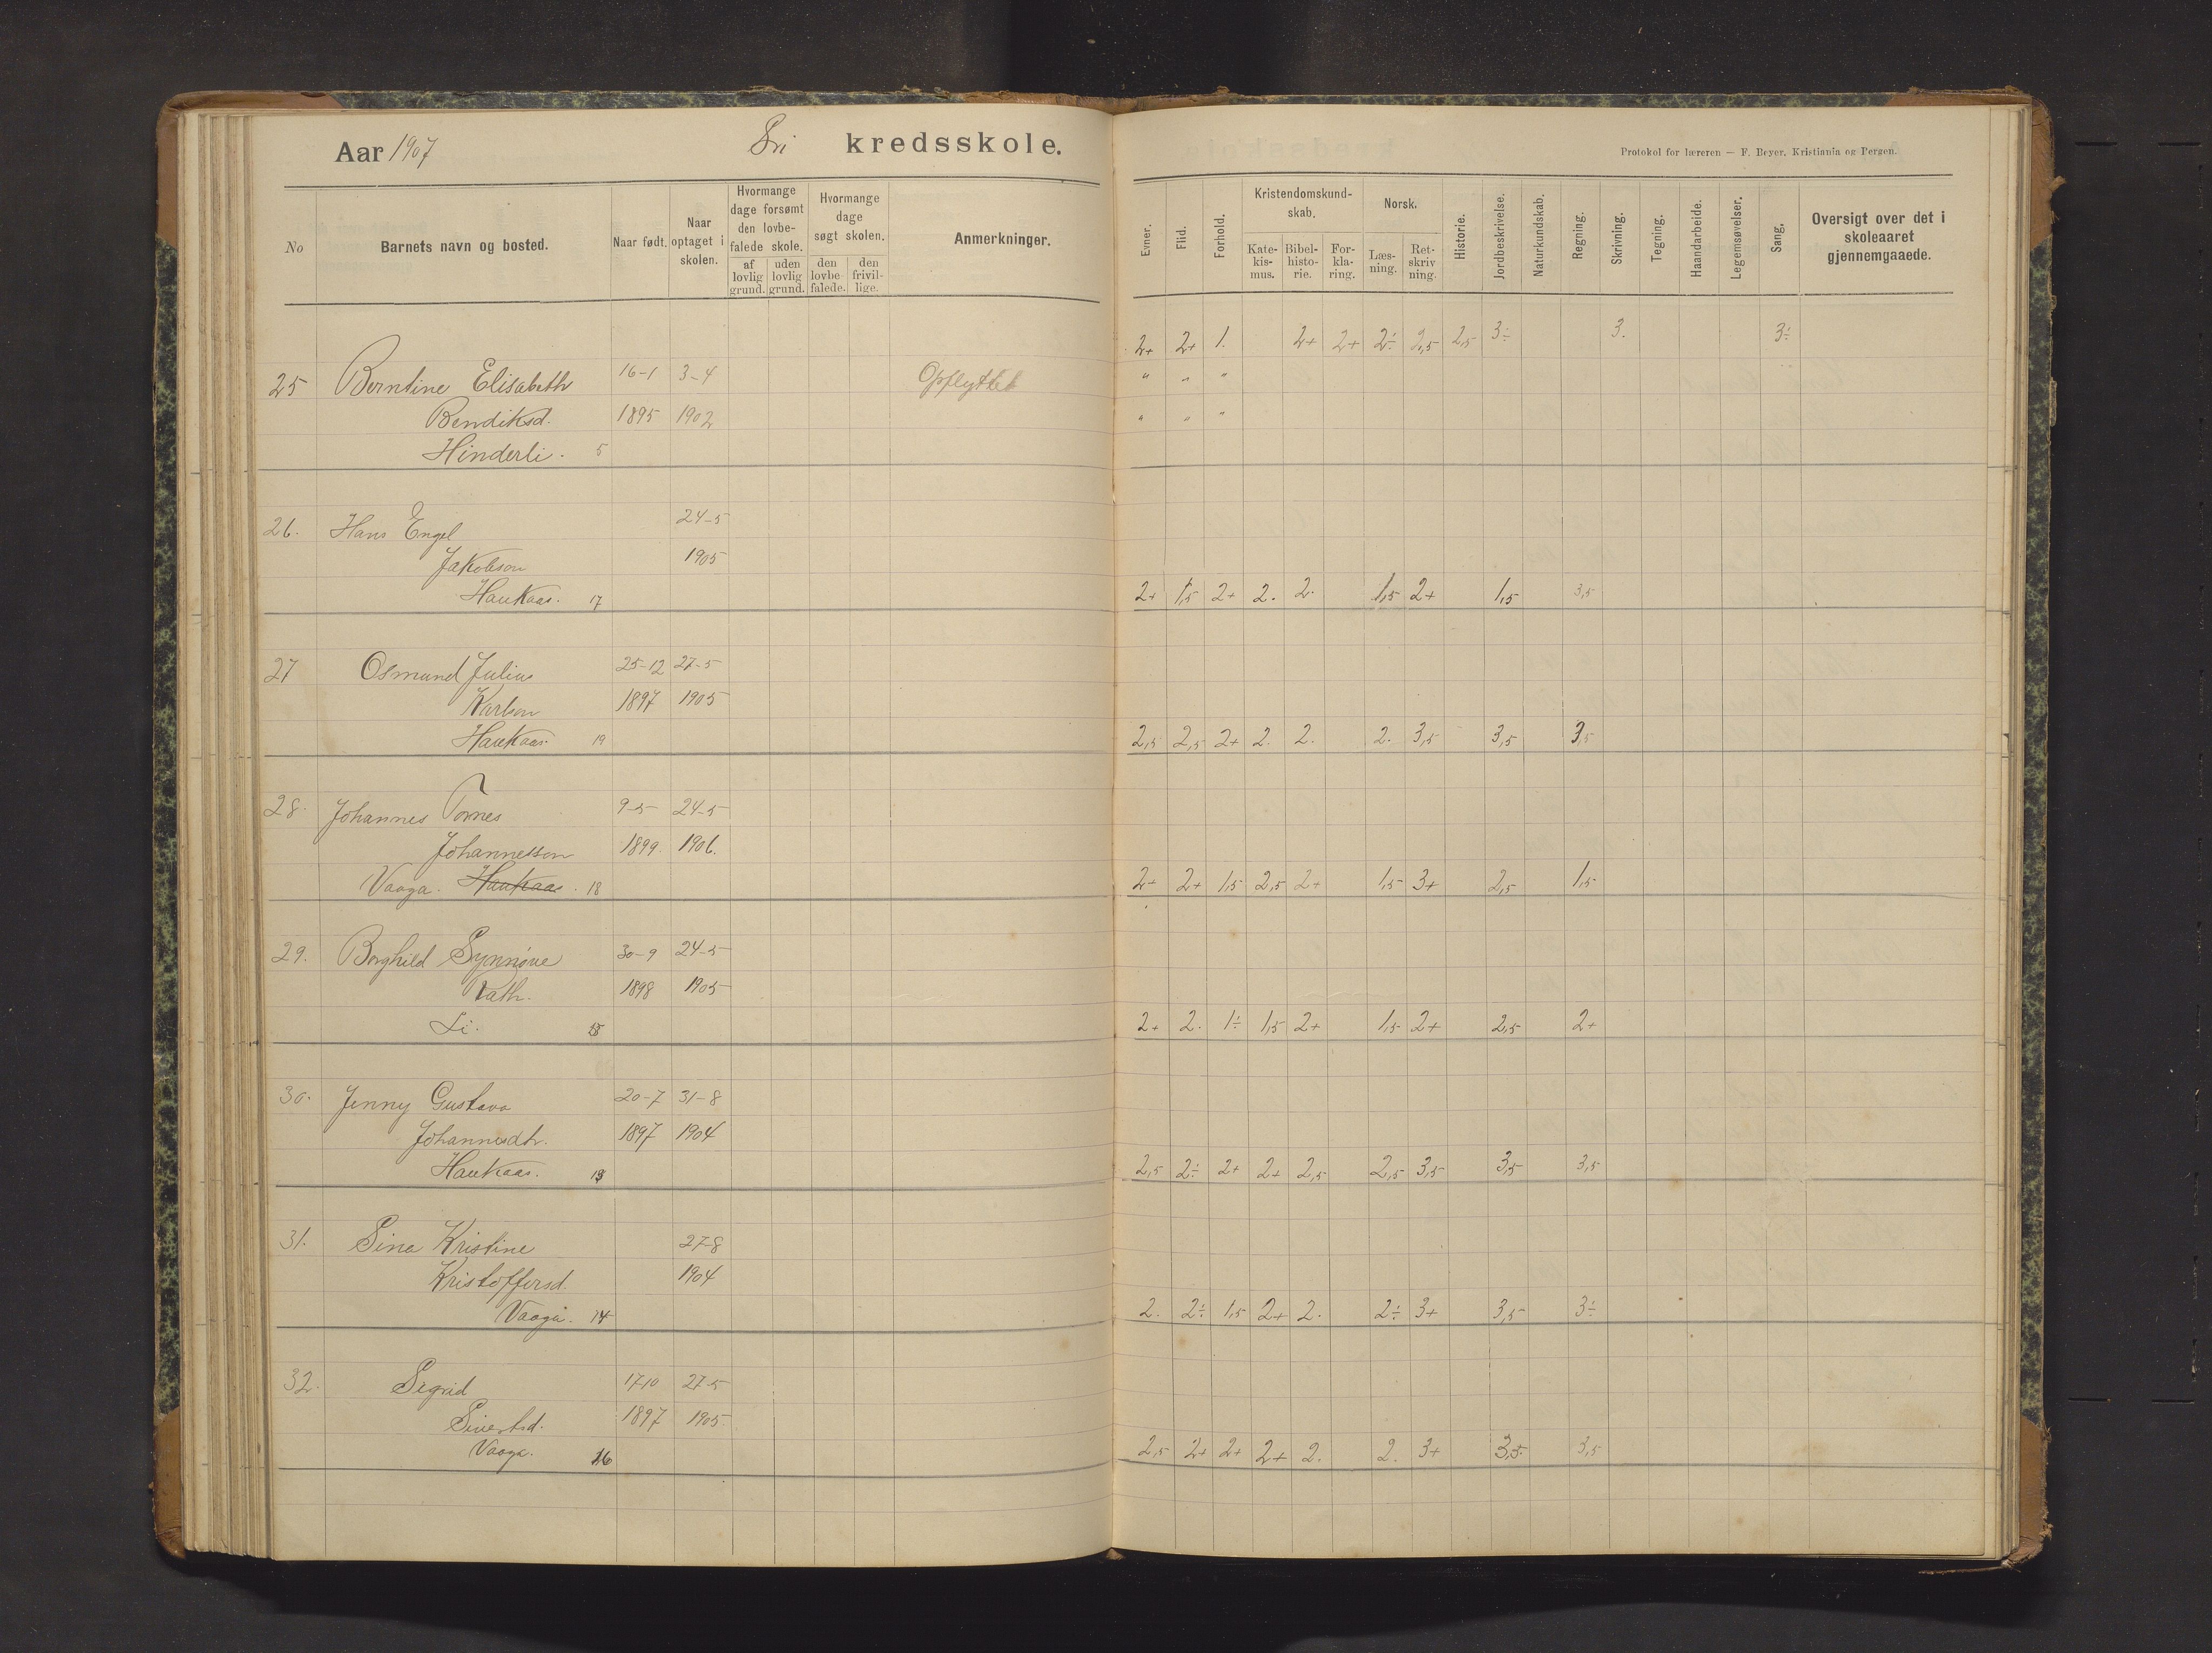 Aar 1907 kredsskole.
Protokol for læreren — F. Beyer, Kristiania og Bergen.
No
Barnets navn og bosted.
Naar født.
Naar optaget i skolen.
Hvormange dage forsømt den lovbefalede skole.
af lovlig grund.
uden lovlig grund.
Hvormange dage søgt skolen.
den lovbefalede.
den frivillige.
Anmerkninger.
Evner.
Flid.
Forhold.
Kristendomskundskab.
Katekismus.
Bibelhistorie.
Forklaring.
Norsk.
Læsning.
Retskrivning.
Historie.
Jordbeskrivelse.
Naturkundskab.
Regning.
Skrivning.
Tegning.
Haandarbeide.
Legemsøvelser.
Sang.
Oversigt over det i skoleaaret gjennemgaaede.
2+ 2+ 1. 2+ 2+ 2÷ 2,5 2,5 3÷ 3. 3÷
25 Berntine Elisabeth 16-1 3-4 Opflyttet " " "
Bendiksd. 1895 1902 " " "
Hinderli. 5
26. Hans Engel 24-5
Jakobson 1905
Haukaas. 17 2+ 1,5 2+ 2. 2. 1,5 2+ 1,5 3,5
27 Osmund Julius 25-12 27-5
Karlson 1897 1905
Haukaas. 19 2,5 2,5 2+ 2. 2. 2. 3,5 3,5 3,5
28. Johannes Tornes 9-5 24-5
Johannesson 1899. 1906.
Vaaga. Haukaas. 18 2+ 2+ 1,5 2,5 2+ 1,5 3+ 2,5 1,5
29. Borghild Synnøve 30-9 24-5
Vath. 1898 1905
Li. 2+ 2. 1÷ 1,5 2+ 1,5 2+ 2,5 2+
30. Jenny Gustava 20-7 31-8
Johannesdtr. 1897 1904
Haukaas. 2,5 2÷ 2+ 2+ 2,5 2,5 3,5 3,5 3,5
31. Sina Kristine 27-8
Kristoffersd. 1904
Vaaga. 14 2. 2÷ 1,5 2+ 2. 2÷ 3+ 3,5 3÷
32. Sigrid 17-10 27-5
Sivertsd. 1897 1905.
Vaaga. 16 2,5 2+ 2+ 2+ 2. 2. 3+ 3,5 3,5